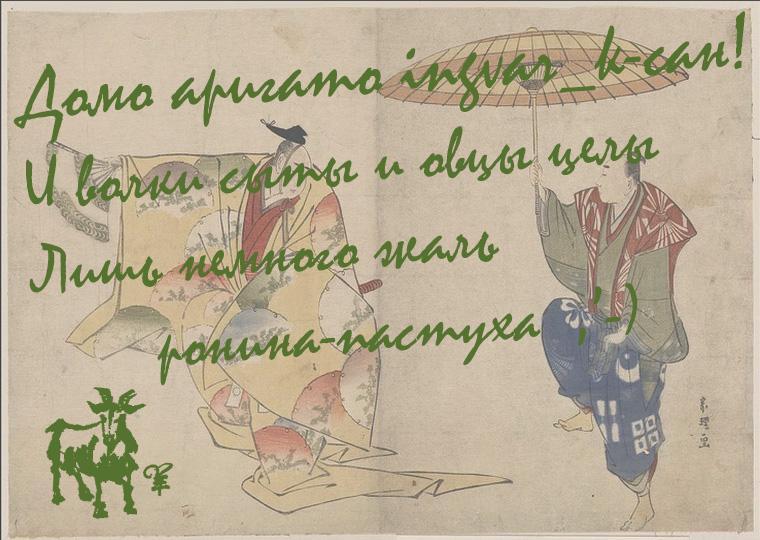 Домо аригато ingvar_k-сан!
И волки сыты и овцы целы
Лишь немного жаль
ронина-пастуха ;'-)
羊